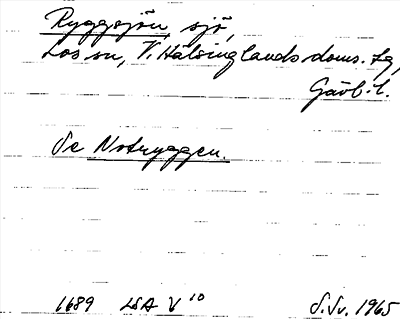 Ryggsjön, sjö,
Los sn, V. Hälsinglands doms. tg,
Gävl. l.
Se Notryggen.
1689 LSA V 10 S. Sv. 1965